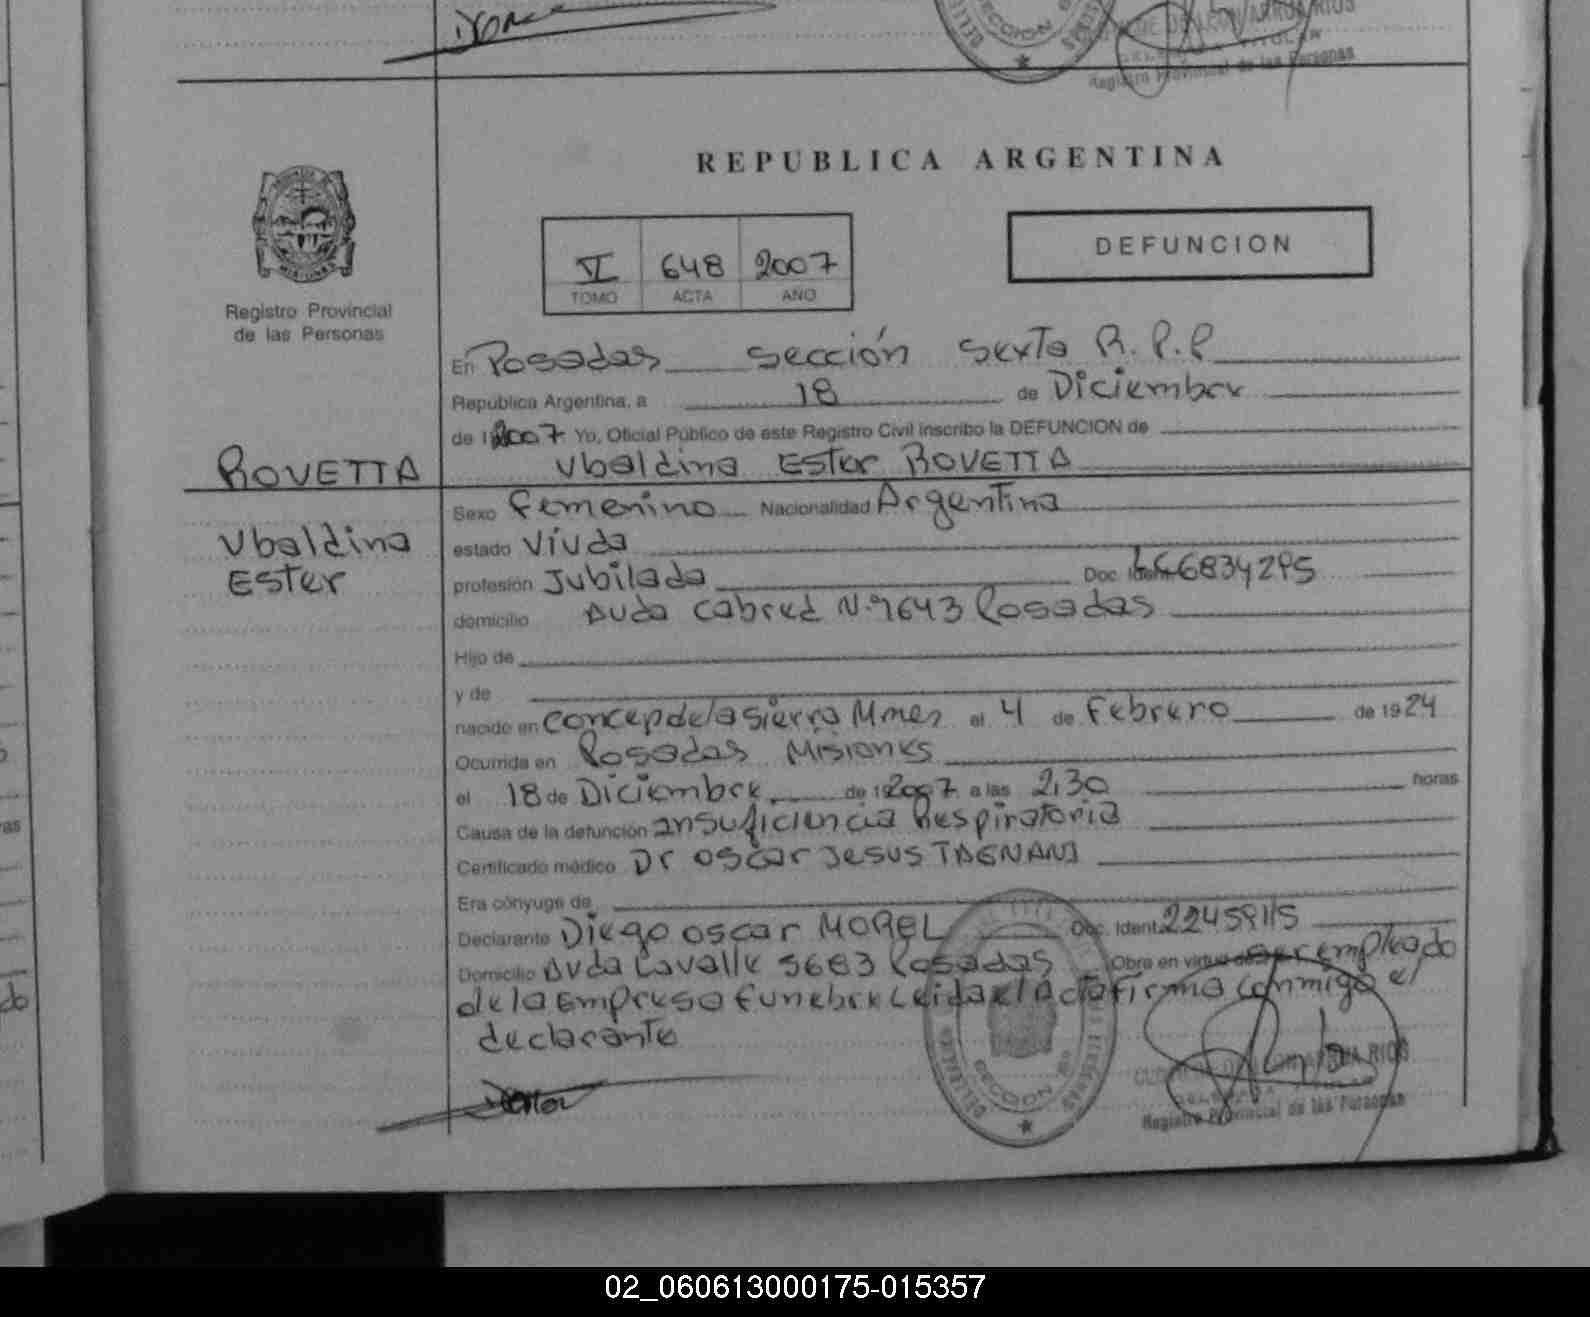 Registro Provincial de las Personas
REPUBLICA ARGENTINA
VI 648 2007
TOMO ACTA AÑO
DEFUNCION
Registro Provincial
de las Personas
En Posadas sección sexta R.P.P
República Argentina, a 18 de Diciembre
de 2007 Yo, Oficial Público de este Registro Civil inscribo la DEFUNCION de
Ubaldina Ester ROVETTA
ROVETTA
Ubaldina
Ester
Sexo Femenino Nacionalidad Argentina
estado Viuda
profesión Jubilada Doc. Ident.
domicilio Avda Cabred Posadas
Hijo de
y de
nacido en Concep de la Sierra Mnes el 4 de Febrero de 1924
Ocurrida en Posadas Misiones
el 18 de Diciembre de 2007 a las 2,30 horas
Causa de la defunción insuficiencia Respiratoria
Certificado médico Dr Oscar Jesus
Era cónyuge de
Declarante Diego Oscar MOREL Doc. Ident.
Domicilio Avda Lavalle 5683 Posadas Obra en virtud de ser empleado
de la Empresa Funebre Leida el Acta firma conmigo el
declarante
SECCION
Registro Provincial de las Personas
02_060613000175-015357